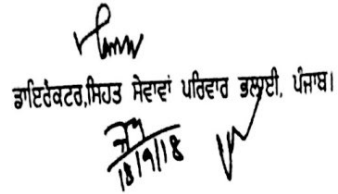 ਡਾਇਰੈਕਟਰ,ਸਿਹਤ ਸੇਵਾਵਾਂ ਪਰਿਵਾਰ ਭਲਾਈ, ਪੰਜਾਬ।
18/9/18